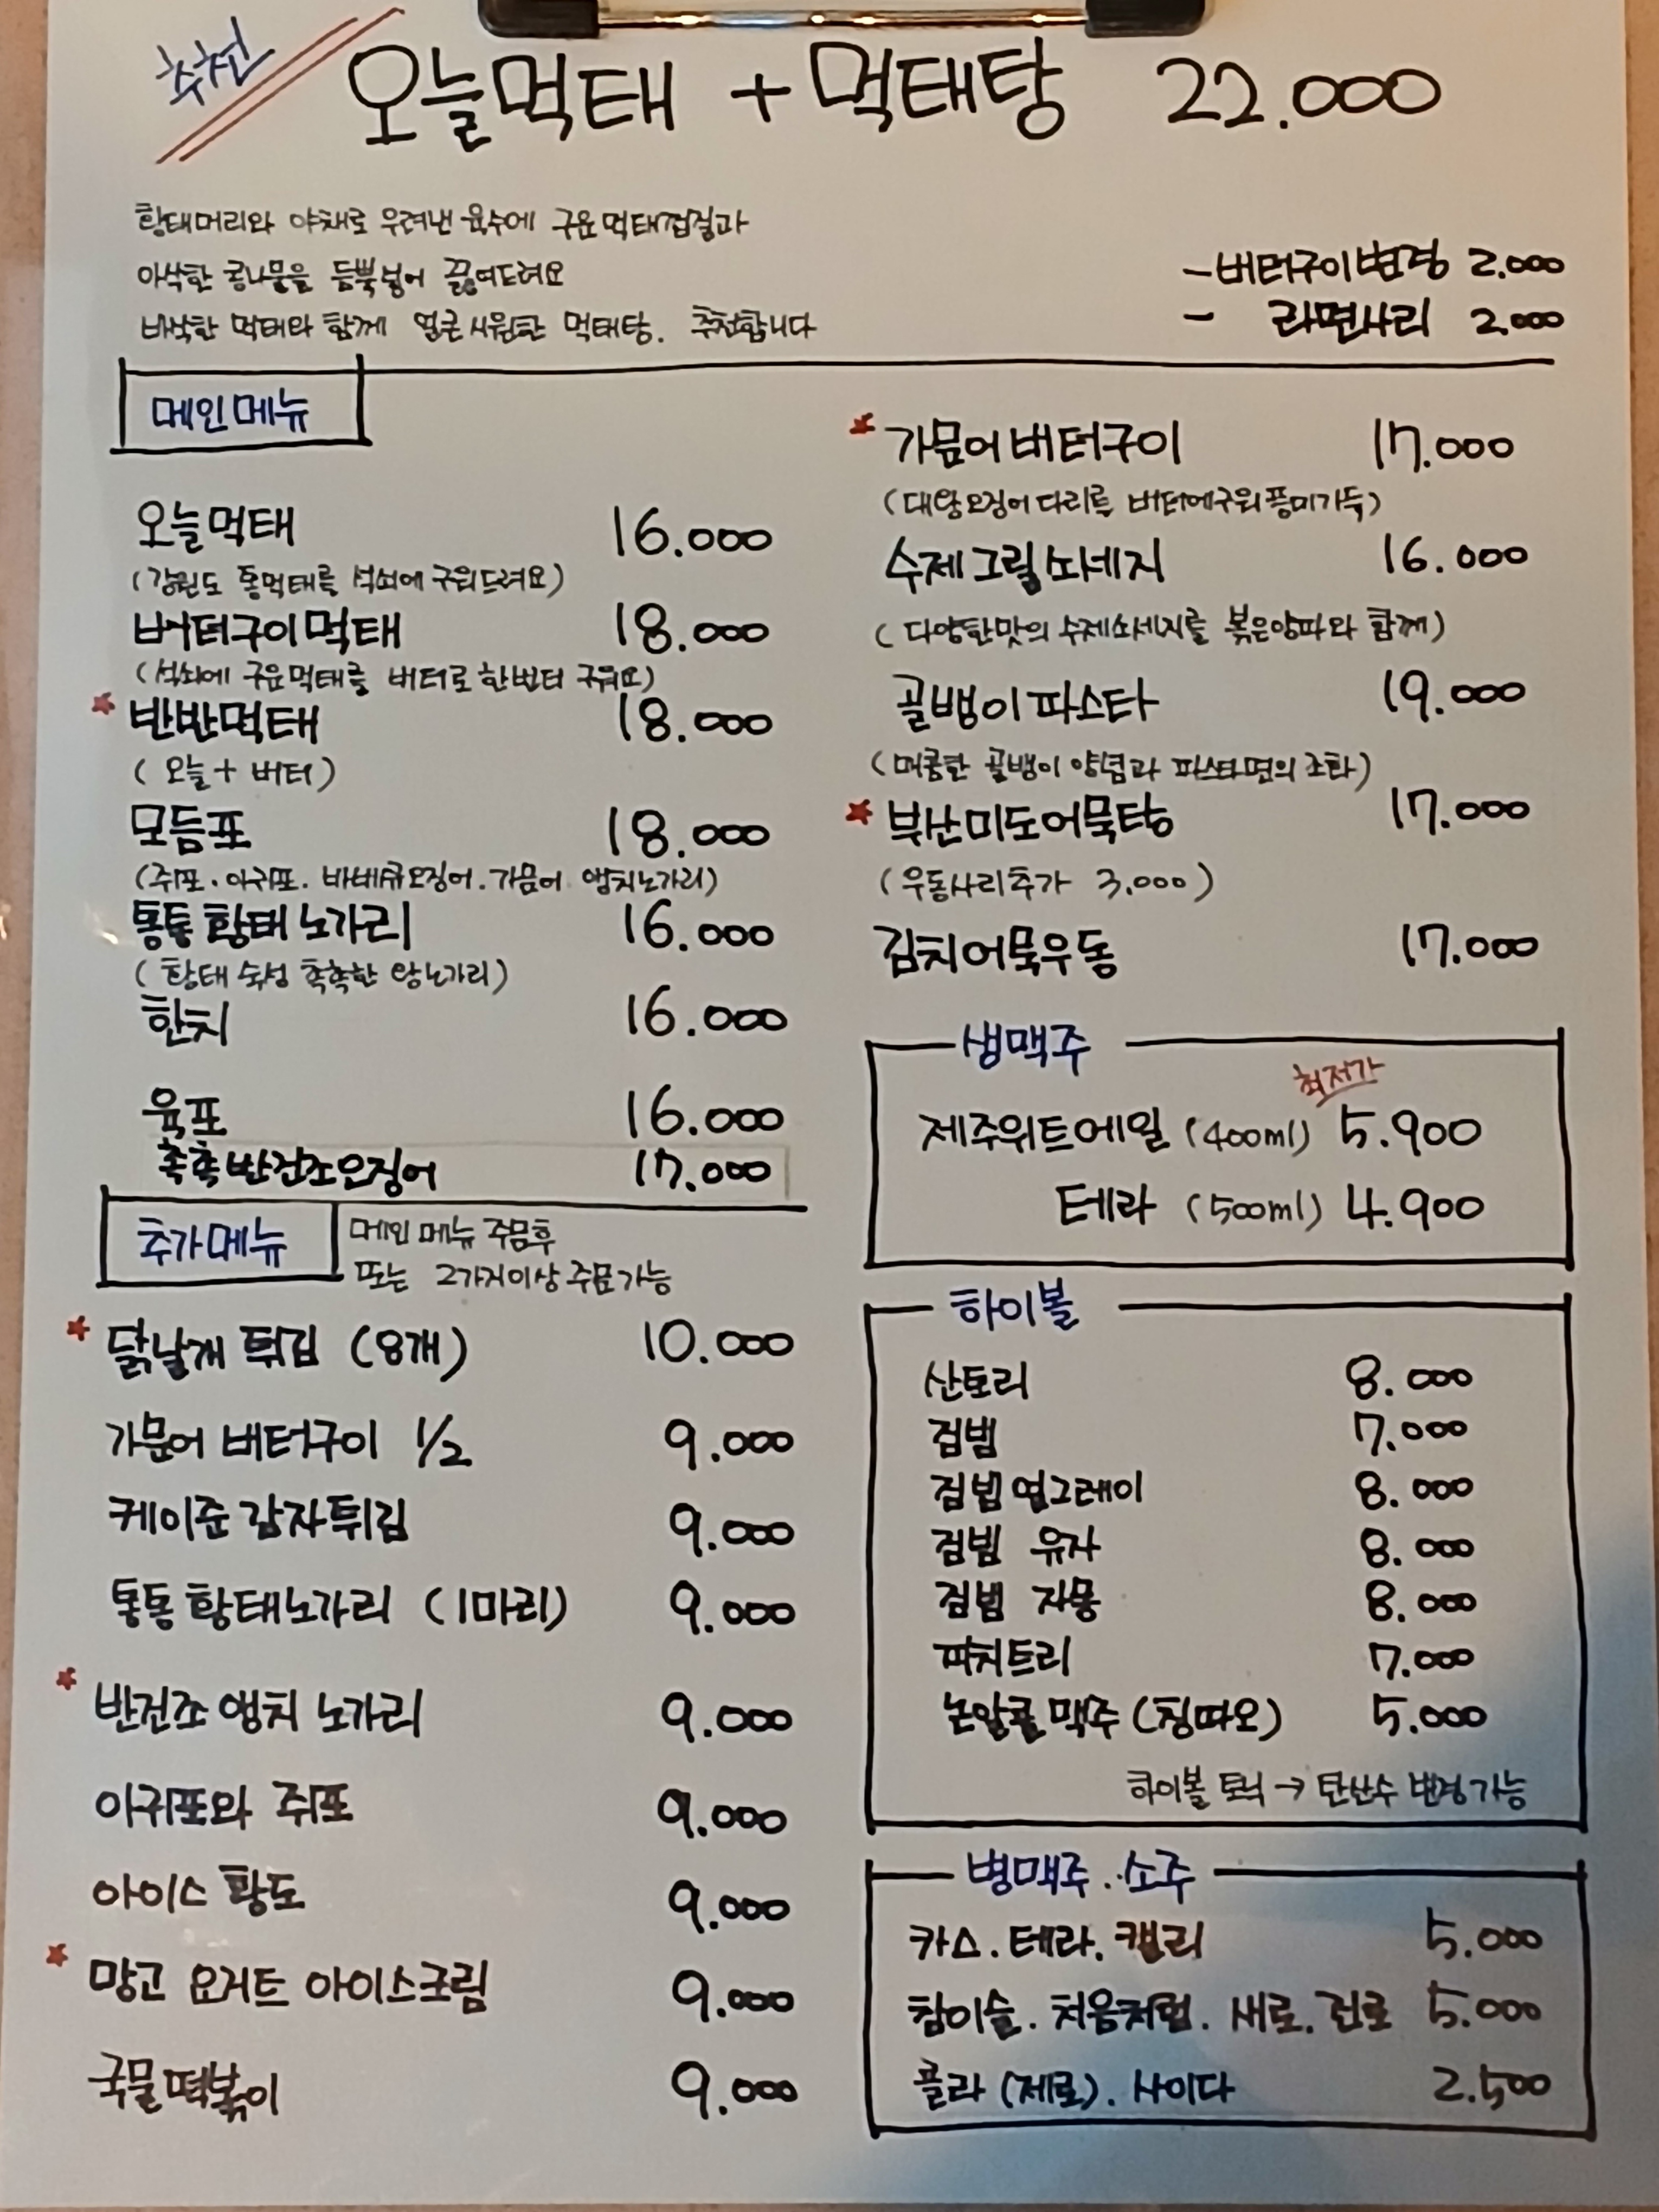 추천
오늘먹태 + 먹태탕 22.000
황태머리와 야채로 우려낸 육수에 구운먹태껍질과
아삭한 콩나물을 듬뿍넣어 끓여드려요
바삭한 먹태와 함께 얼큰시원한 먹태탕. 추천합니다
- 버터구이변경 2.000
- 라면사리 2.000
메인메뉴
오늘먹태 16.000
(강원도 통먹태를 석쇠에 구워드려요)
버터구이먹태 18.000
(석쇠에 구운먹태를 버터로 한번더 구워요)
* 반반먹태 18.000
(오늘 + 버터)
모듬포 18.000
(쥐포. 아귀포. 바베큐오징어. 가문어 앵치노가리)
통통황태노가리 16.000
(황태 숙성 촉촉한 왕노가리)
한치 16.000
육포 16.000
촉촉반건조오징어 17.000
* 가문어버터구이 17.000
(대왕오징어다리를 버터에구워풍미가득)
수제그릴쏘세지 16.000
(다양한맛의 수제쏘세지를 볶은양파와 함께)
골뱅이파스타 19.000
(매콤한 골뱅이 양념과 파스타면의 조화)
* 부산미도어묵탕 17.000
(우동사리추가 3,000)
김치어묵우동 17.000
추가메뉴
메인메뉴 주문후
또는 2가지이상주문가능
* 닭날개 튀김 (8개) 10.000
가문어 버터구이 1/2 9.000
케이준감자튀김 9.000
통통황태노가리 (1마리) 9.000
* 반건조 앵치 노가리 9.000
아귀포와 쥐포 9.000
아이스 황도 9.000
* 망고 요거트 아이스크림 9.000
국물떡볶이 9.000
생맥주
최저가
제주위트에일 (400ml) 5.900
테라 (500ml) 4.900
하이볼
산토리 8.000
짐빔 7.000
짐빔얼그레이 8.000
짐빔 유자 8.000
짐빔 자몽 8.000
피치트리 7.000
논알콜맥주 (칭따오) 5.000
하이볼 토닉 → 탄산수 변경가능
병맥주. 소주
카스. 테라. 켈리 5.000
참이슬. 처음처럼. 새로. 진로 5.000
콜라 (제로). 사이다 2.500